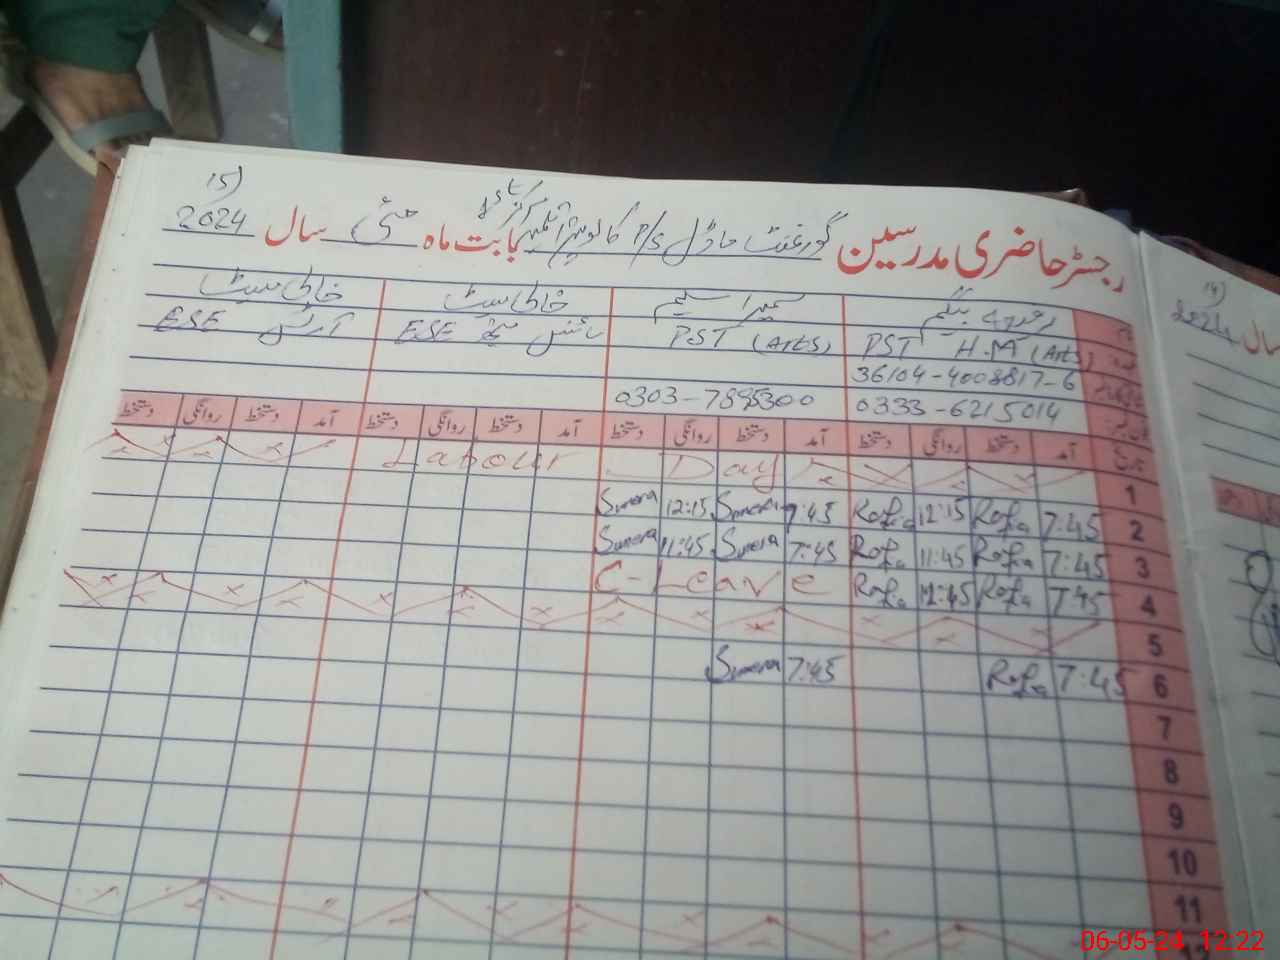 15)
رجسٹر حاضری مدرسین گورنمنٹ ماڈل P/S بابت ماہ مئی سال 2024
سمیرا سلیم خالی سیٹ خالی سیٹ
PST H.M (Arts) PST (Arts) سائنس ESE آرٹس ESE
36104-4008817-6
0333-6215014 0303-7895300
تاریخ آمد دستخط روانگی دستخط آمد دستخط روانگی دستخط آمد دستخط روانگی دستخط آمد دستخط روانگی دستخط
1 Labour Day
2 7:45 Rafia 12:15 Rafia 7:45 Sumera 12:15 Sumera
3 7:45 Rafia 11:45 Rafia 7:45 Sumera 11:45 Sumera
4 7:45 Rafia 12:45 Rafia C-Leave
5
6 7:45 Rafia 7:45 Sumera
7
8
9
10
11
12
سال 2024
06-05-24 12:22